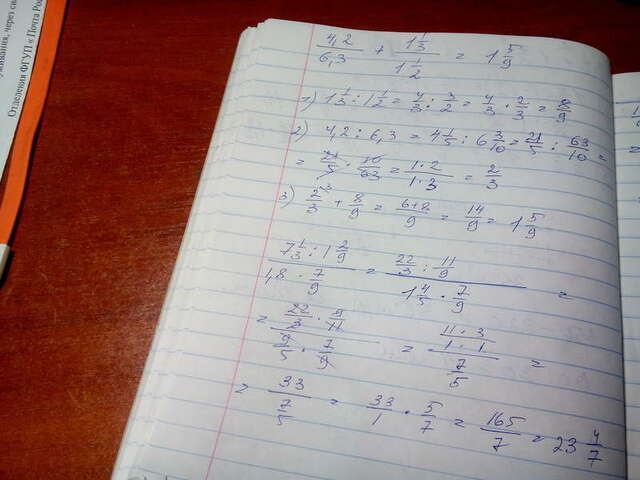 уживания, через св
Отделения ФГУП « Почта Рос
4,2/6,3 + 1 1/3 / 1 1/2 = 1 5/9
1) 1 1/3 : 1 1/2 = 4/3 : 3/2 = 4/3 · 2/3 = 8/9
2) 4,2 : 6,3 = 4 1/5 : 6 3/10 = 21/5 : 63/10 =
= 21/5 · 10/63 = 1·2/1·3 = 2/3
3) 2/3 + 8/9 = 6+8/9 = 14/9 = 1 5/9
7 1/3 : 1 2/9 / 1,8 · 7/9 = 22/3 : 11/9 / 1 4/5 · 7/9 =
= 22/3 · 9/11 / 9/5 · 7/9 = 11·3/1·1 / 7/5 =
= 33 / 7/5 = 33/1 · 5/7 = 165/7 = 23 4/7